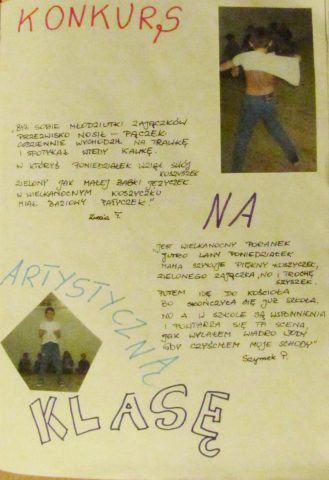 KONKURS
"BYŁ SOBIE MŁODZIUTKI ZAJĄCZKÓW
PRZEZWISKO NOSIŁ - PĄCZEK.
CODZIENNIE WYCHODZIŁ NA TRAWKĘ
I SPOTYKAŁ WTEDY KAWKĘ.
W KTÓRYŚ PONIEDZIAŁEK WZIĄŁ SWÓJ
KOSZYCZEK
ZIELONY JAK MAŁEJ ŻABKI JĘZYCZEK
W WIELKANOCNYM KOSZYCZKU
MIAŁ BAZIOWY PATYCZEK."
Zuzia
NA
"JEST WIELKANOCNY PORANEK
JUTRO LANY PONIEDZIAŁEK
MAMA SZYKUJE PIĘKNY KOSZYCZEK,
ZIELONEGO ZAJĄCZKA, NO I TROCHĘ
SZYSZEK.
POTEM IDĘ DO KOŚCIOŁA
BO SKOŃCZYŁA SIĘ JUŻ SZKOŁA,
NO A W SZKOLE SĄ WSPOMNIENIA
I POWTARZA SIĘ TA SCENA,
JAK WYLAŁEM WIADRO WODY
GDY CZYŚCIŁEM MOJE SCHODY"
Szymek P.
ARTYSTYCZNĄ
KLASĘ